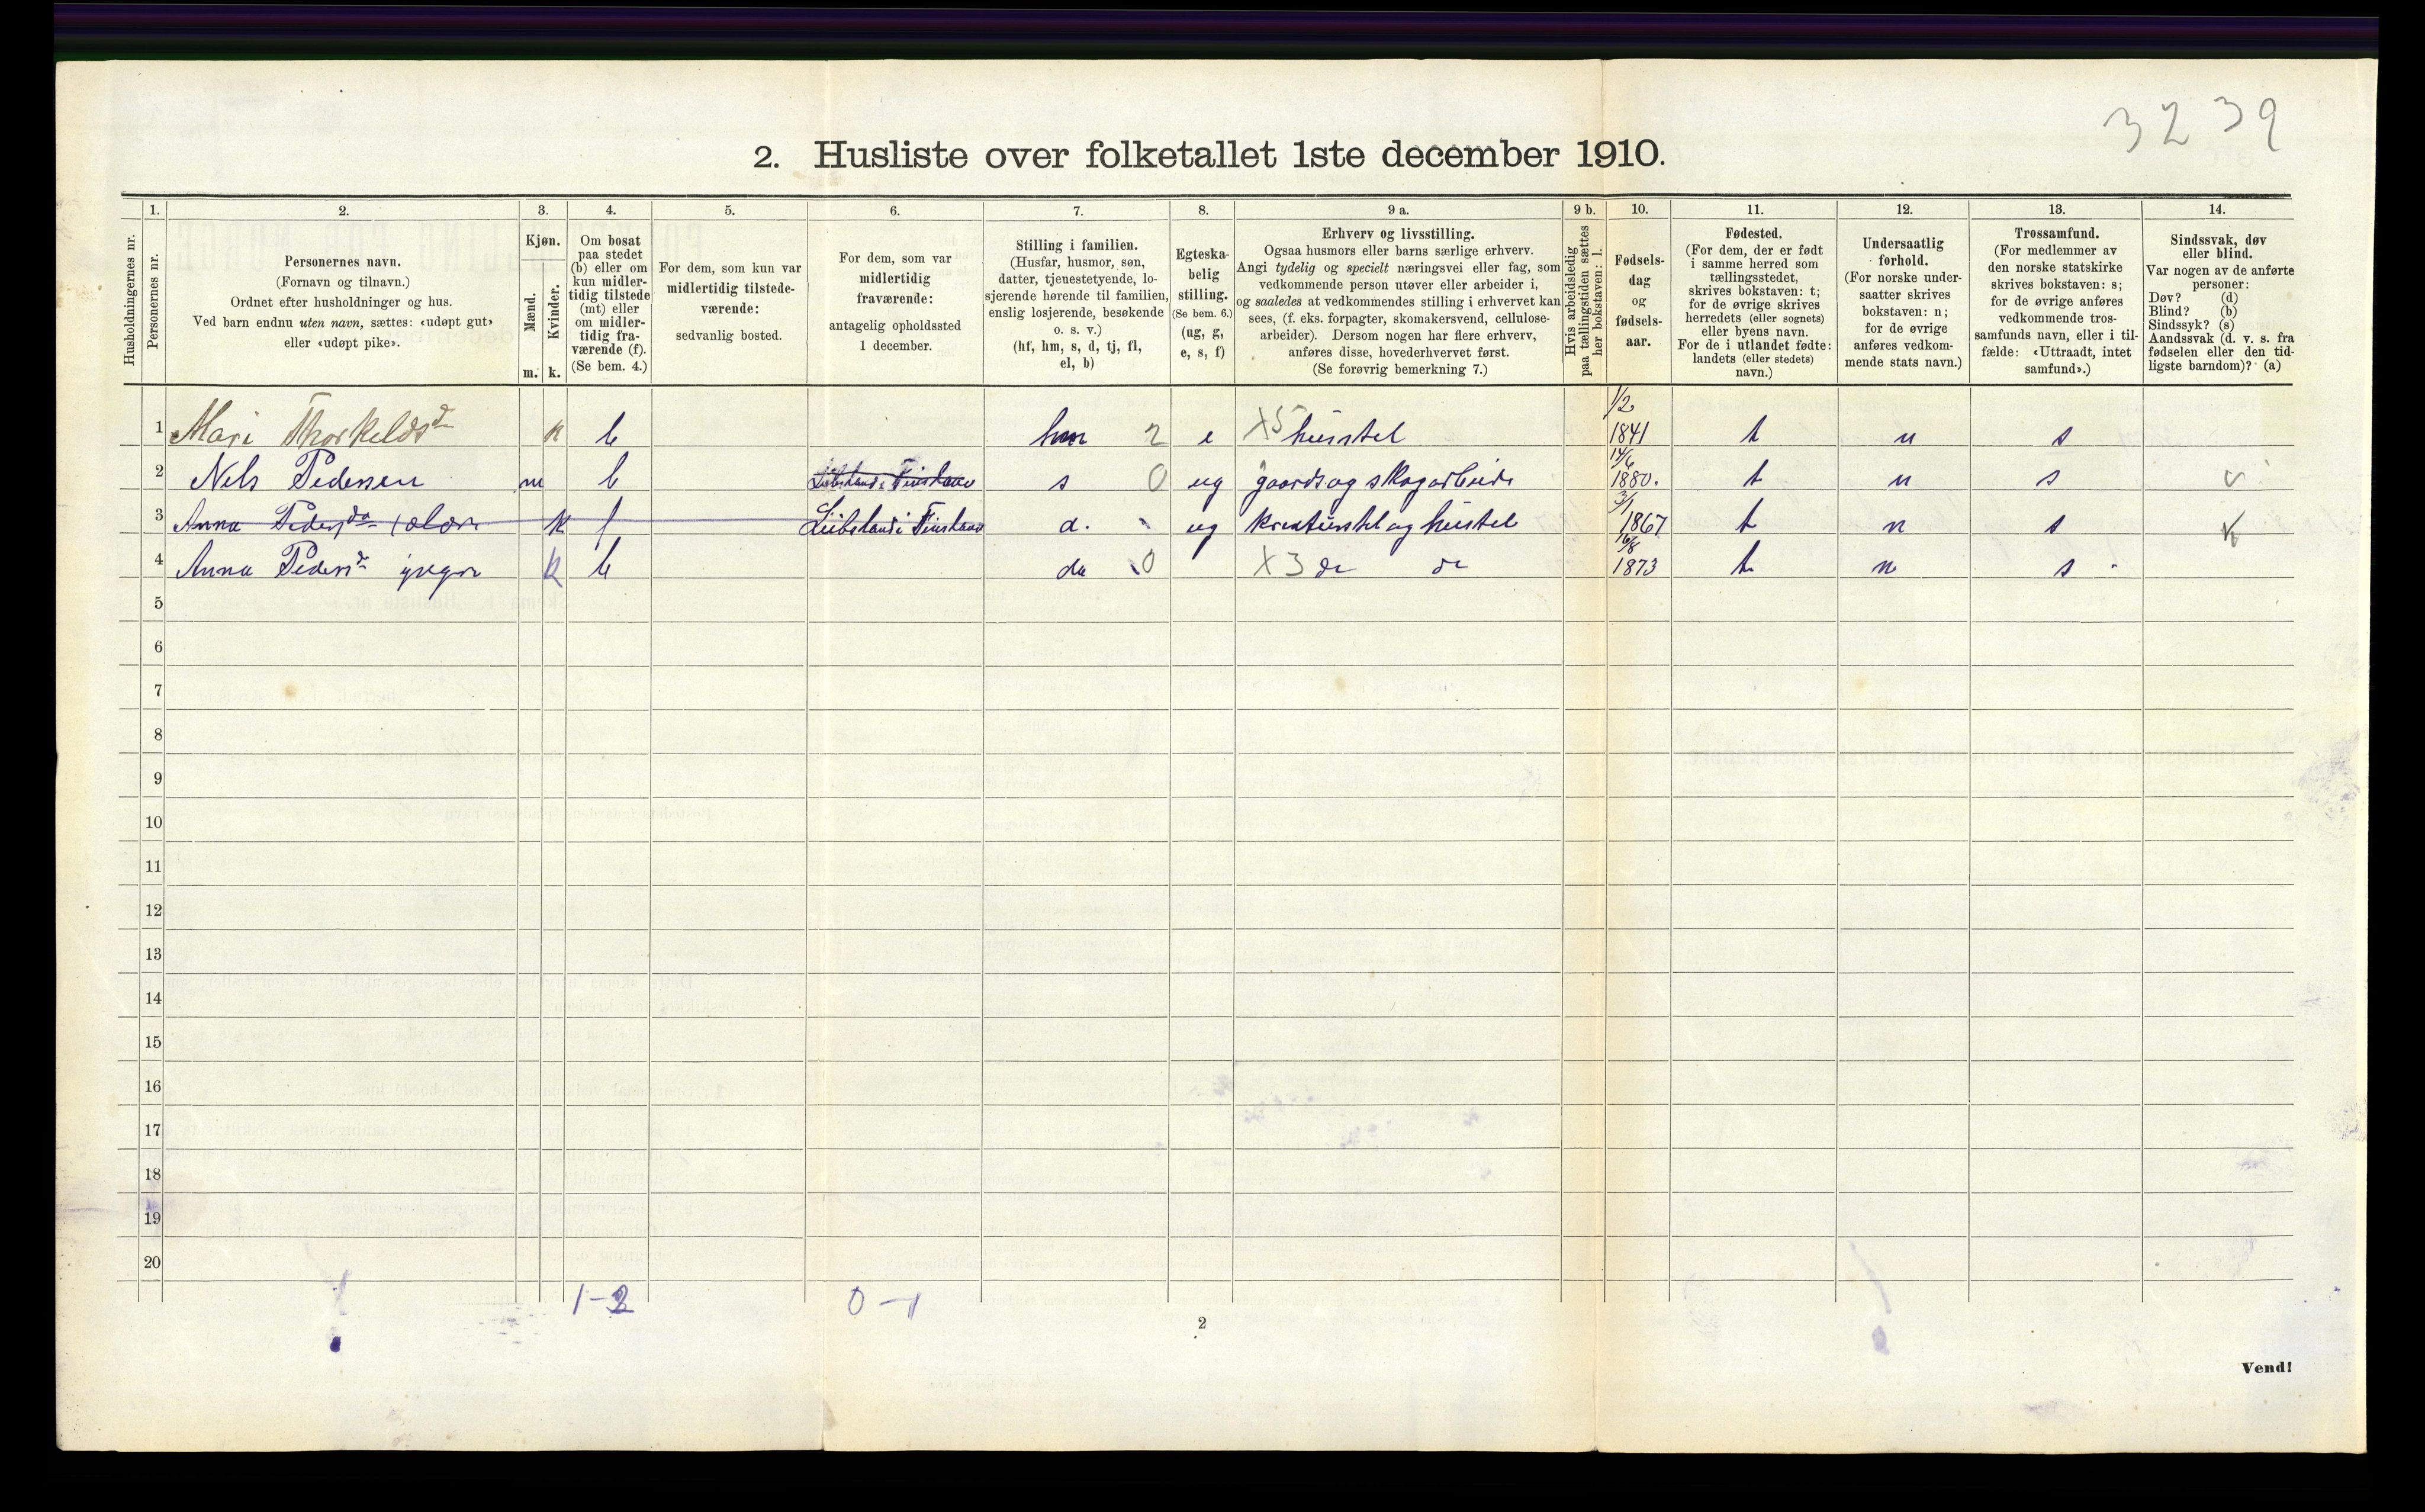 3239
2. Husliste over folketallet 1ste december 1910.
Husholdningernes nr.
1.
Personernes nr.
2.
Personernes navn.
(Fornavn og tilnavn.)
Ordnet efter husholdninger og hus.
Ved barn endnu uten navn, sættes: «udøpt gut»
eller «udøpt pike».
3.
Kjøn.
Mænd.
Kvinder.
m. k.
4.
Om bosat
paa stedet
(b) eller om
kun midler-
tidig tilstede
(mt) eller
om midler-
tidig fra-
værende (f).
(Se bem. 4.)
5.
For dem, som kun var
midlertidig tilstede-
værende:
sedvanlig bosted.
6.
For dem, som var
midlertidig
fraværende:
antagelig opholdssted
1 december.
7.
Stilling i familien.
(Husfar, husmor, søn,
datter, tjenestetyende, lo-
sjerende hørende til familien,
enslig losjerende, besøkende
o. s. v.)
(hf, hm, s, d, tj, fl,
el, b)
8.
Egteska-
belig
stilling.
(Se bem. 6.)
(ug, g,
e, s, f)
9 a.
Erhverv og livsstilling.
Ogsaa husmors eller barns særlige erhverv.
Angi tydelig og specielt næringsvei eller fag, som
vedkommende person utøver eller arbeider i,
og saaledes at vedkommendes stilling i erhvervet kan
sees, (f. eks. forpagter, skomakersvend, cellulose-
arbeider). Dersom nogen har flere erhverv,
anføres disse, hovederhvervet først.
(Se forøvrig bemerkning 7.)
9 b.
Hvis arbeidsledig
paa tællingstiden sættes
her bokstaven: l.
10.
Fødsels-
dag
og
fødsels-
aar.
11.
Fødested.
(For dem, der er født
i samme herred som
tællingsstedet,
skrives bokstaven: t;
for de øvrige skrives
herredets (eller sognets)
eller byens navn.
For de i utlandet fødte:
landets (eller stedets)
navn.)
12.
Undersaatlig
forhold.
(For norske under-
saatter skrives
bokstaven: n;
for de øvrige
anføres vedkom-
mende stats navn.)
13.
Trossamfund.
(For medlemmer av
den norske statskirke
skrives bokstaven: s;
for de øvrige anføres
vedkommende tros-
samfunds navn, eller i til-
fælde: «Uttraadt, intet
samfund».)
14.
Sindssvak, døv
eller blind.
Var nogen av de anførte
personer:
Døv? (d)
Blind? (b)
Sindssyk? (s)
Aandssvak (d. v. s. fra
fødselen eller den tid-
ligste barndom)? (a)
1 Mari Thorkeldsd k b hm 2 e X5 husstel 1/2 1841 t n s
2 Nels Pedersen m b s 0 ug gaards og skogarbeide 14/6 1880. t n s
3 Anna Pedersda k f d. ug kreaturstel og husstel 3/1 1867 t n s
4 Anna Pedersd yngre k b da 0 X3 do do 16/8 1873 t n s
5
6
7
8
9
10
11
12
13
14
15
16
17
18
19
20
1-2 0-1
2
Vend!